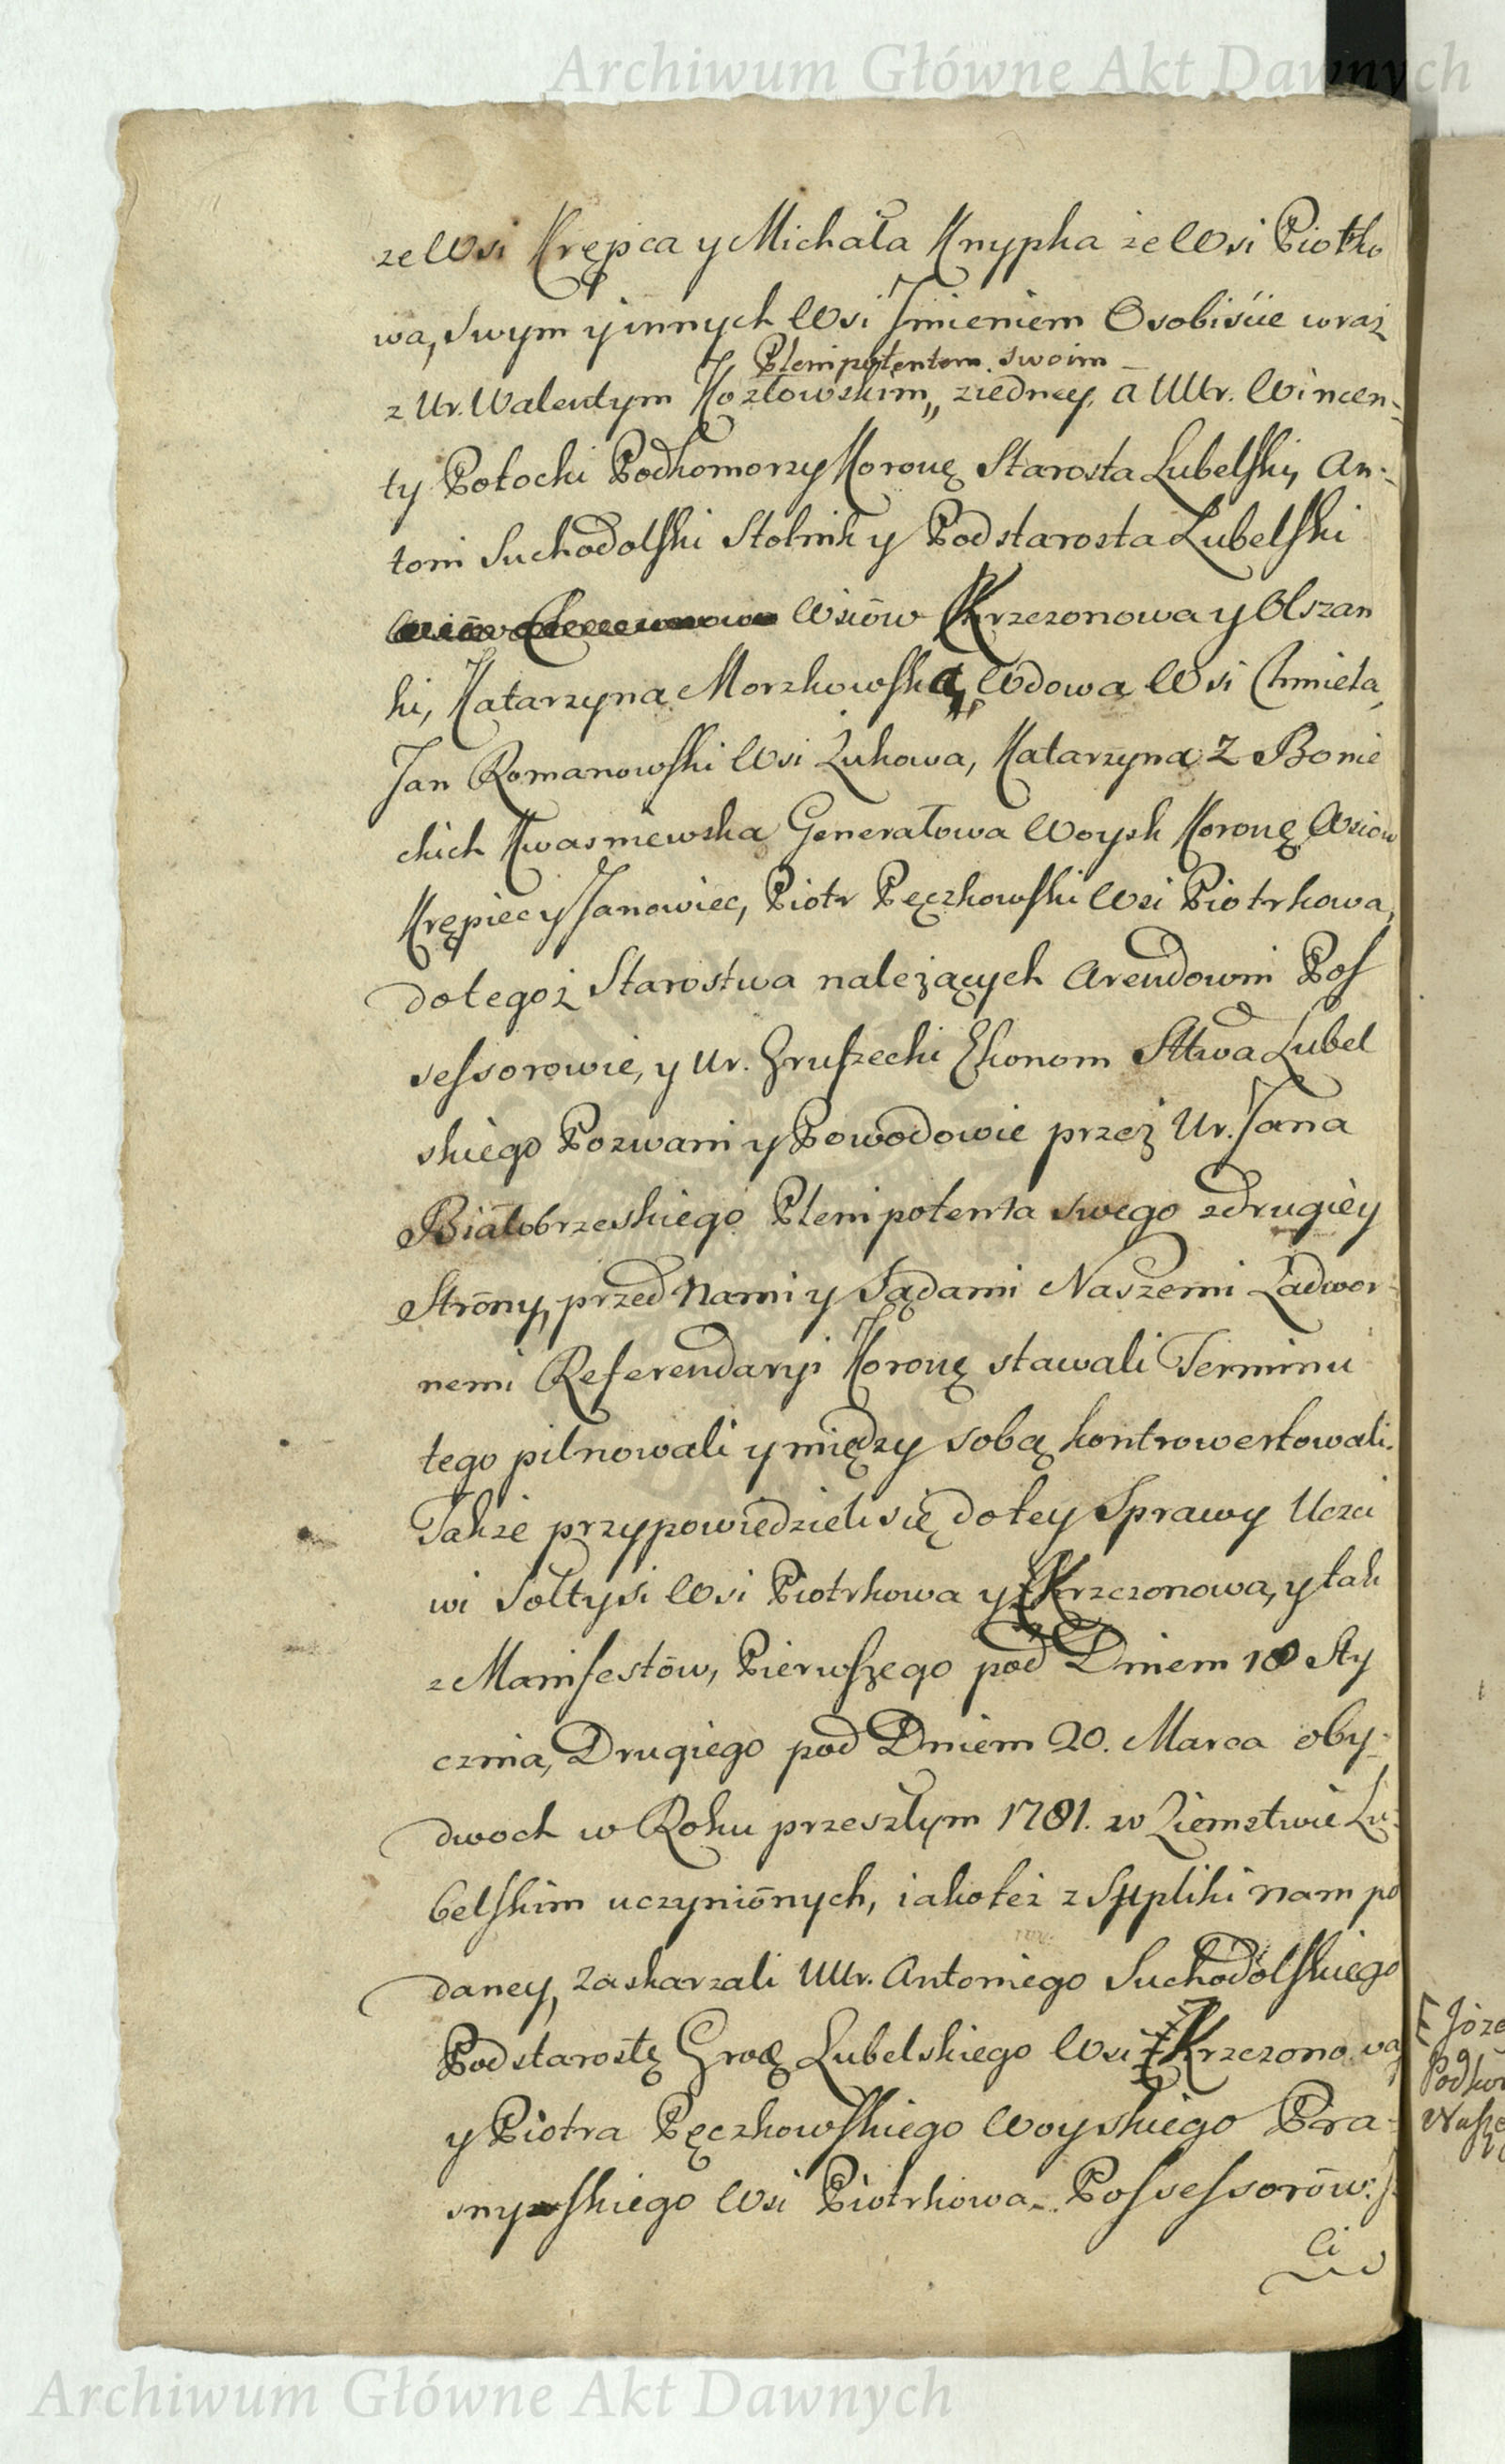 Archiwum Główne Akt Dawnych
ze Wsi Krępca y Michała Knypka ze Wsi Piotrko
wa, swym y innych Wsi Jmieniem Osobiście wraz
Plenipotentem swoim
z Ur. Walentym Kozłowskim,, ziedney, a UUr. Wincen-
ty Potocki Podkomorzy Koronę Starosta Lubelski, An-
toni Suchodolski Stolnik y Podstarosta Lubelski
Wsiów Krzczonowa y Olszan
ki, Katarzyna Morzkowska, Wdowa Wsi Chmiela,
Jan Romanowski Wsi Żukowa, Katarzyna z Bonie
ckich Kwasniewska Generałowa Woysk Koronę Wsiow
Krępiec y Janowiec, Piotr Pęczkowski Wsi Piotrkowa,
do tegoż Starostwa należących Arendowni Pos
sessorowie, y Ur. Gruszecki Ekonom Sttwa Lubel
skiego Pozwani y Powodowie przez Ur. Jana
Białobrzeskiego Plenipotenta swego zdrugiey
Strōny, przed Nami y Sądami Naszemi Zadwor-
nemi Referendaryi Koronę stawali Terminu
tego pilnowali y między sobą kontrowertowali.
Także przypowiedzieli się do tey Sprawy Uczci
wi Sołtysi Wsi Piotrkowa y Krzczonowa, y tak
z Manifestōw, Pierwszego pod Dniem 18 Sty
cznia, Drugiego pod Dniem 20. Marca oby-
dwoch w Roku przeszłym 1781. w Ziemstwie Lu-
belskim uczyniōnych, iako też z Supliki nam po
daney, zaskarzali UUr. Antoniego Suchodolskiego
Podstarostę Grodę Lubelskiego Wsi Krzczonowa
y Piotra Pęczkowskiego Woyskiego Pra-
snyskiego Wsi Piotrkowa Possessorōw.
Ci
Józe
Podko
Nasze
Archiwum Główne Akt Dawnych